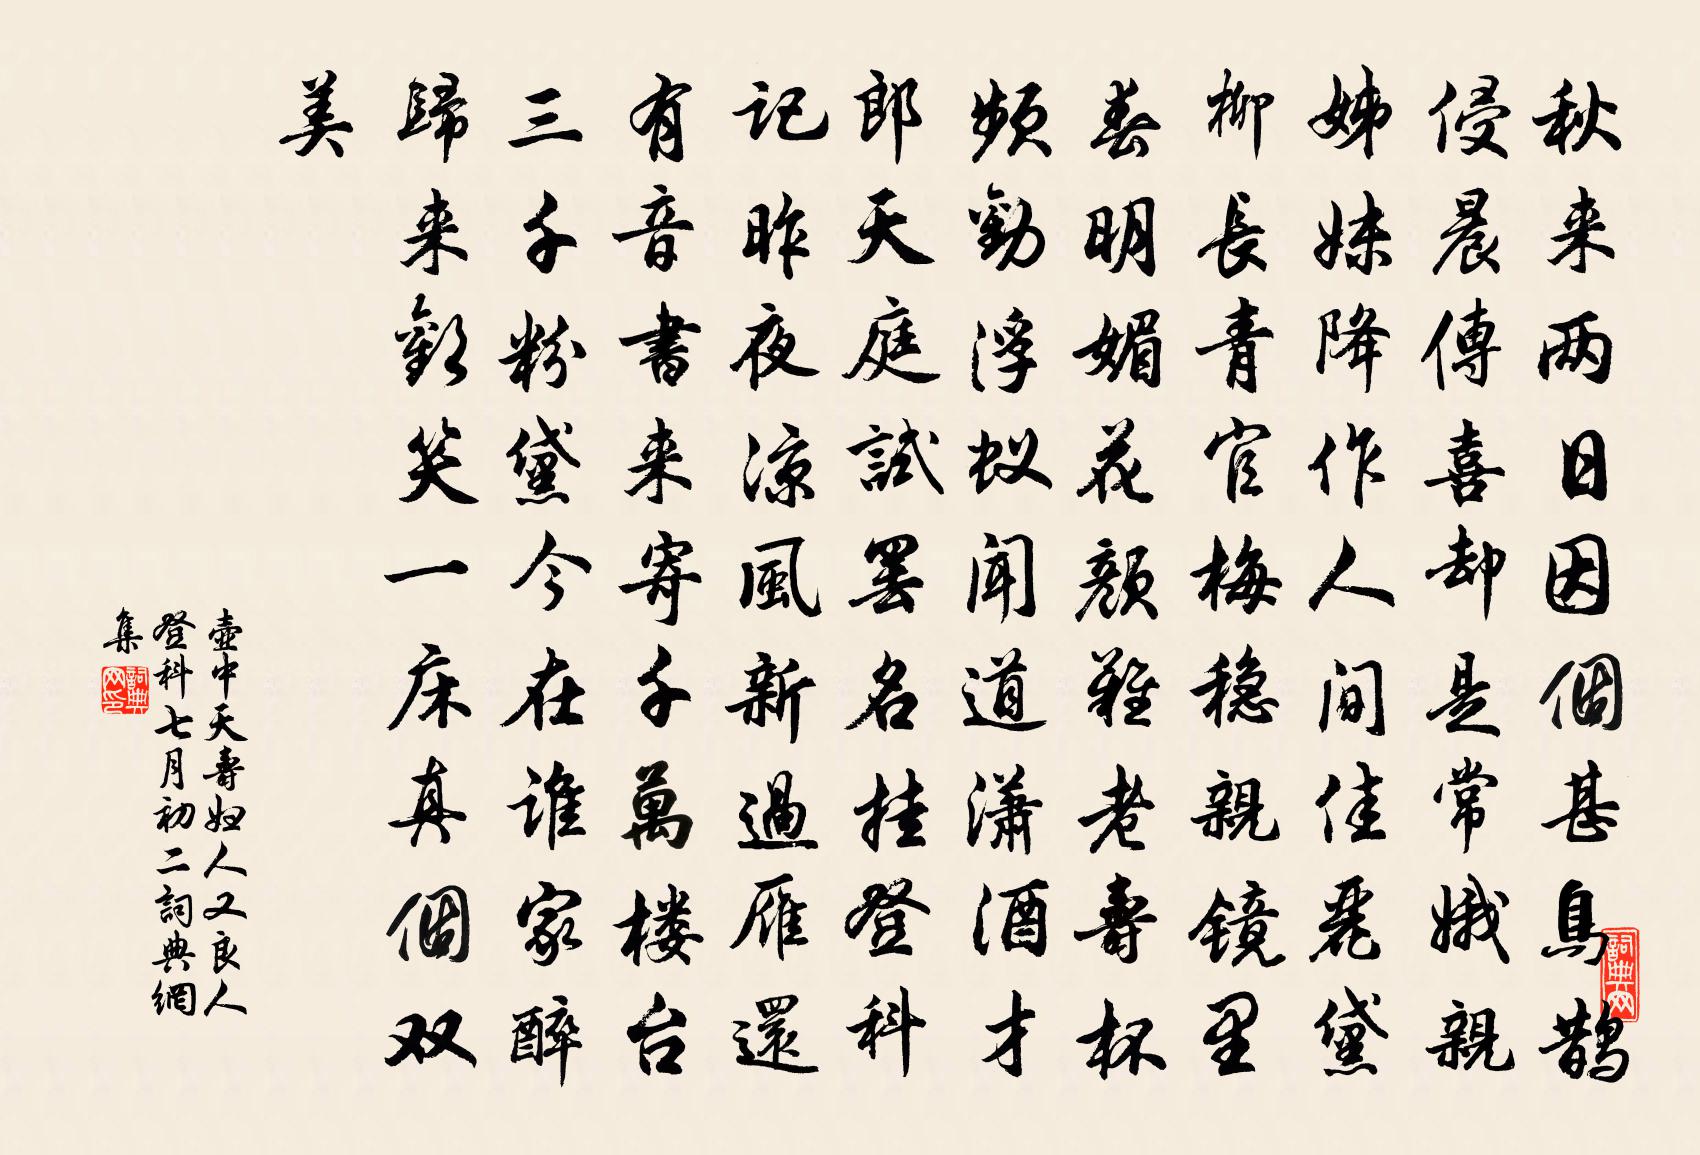 秋来两日因個甚鳥鵲
侵晨傳喜却是常娥親
姊妹降作人间佳麗黛
柳長青官梅穏親镜里
春明媚花顔難老壽杯
頻勸浮蚁闻道潇洒才
郎天庭試罢名挂登科
记昨夜涼風新過雁還
有音書来寄千萬楼台
三千粉黛今在谁家醉
歸来歡笑一床真個双
美
壶中天壽妇人又良人
登科七月初二詞典網
集
詞典网
詞典网印